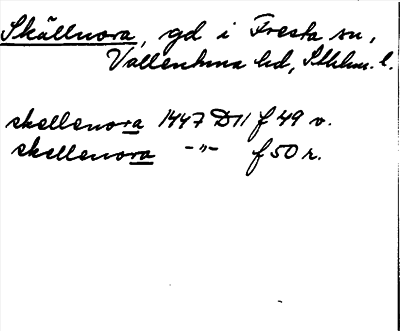 Skällnora, gd i Fresta sn,
Vallentuna hd, Sthlms. l.
skellenora 1447 D11 f 49 v.
skellenora -"- f 50 r.